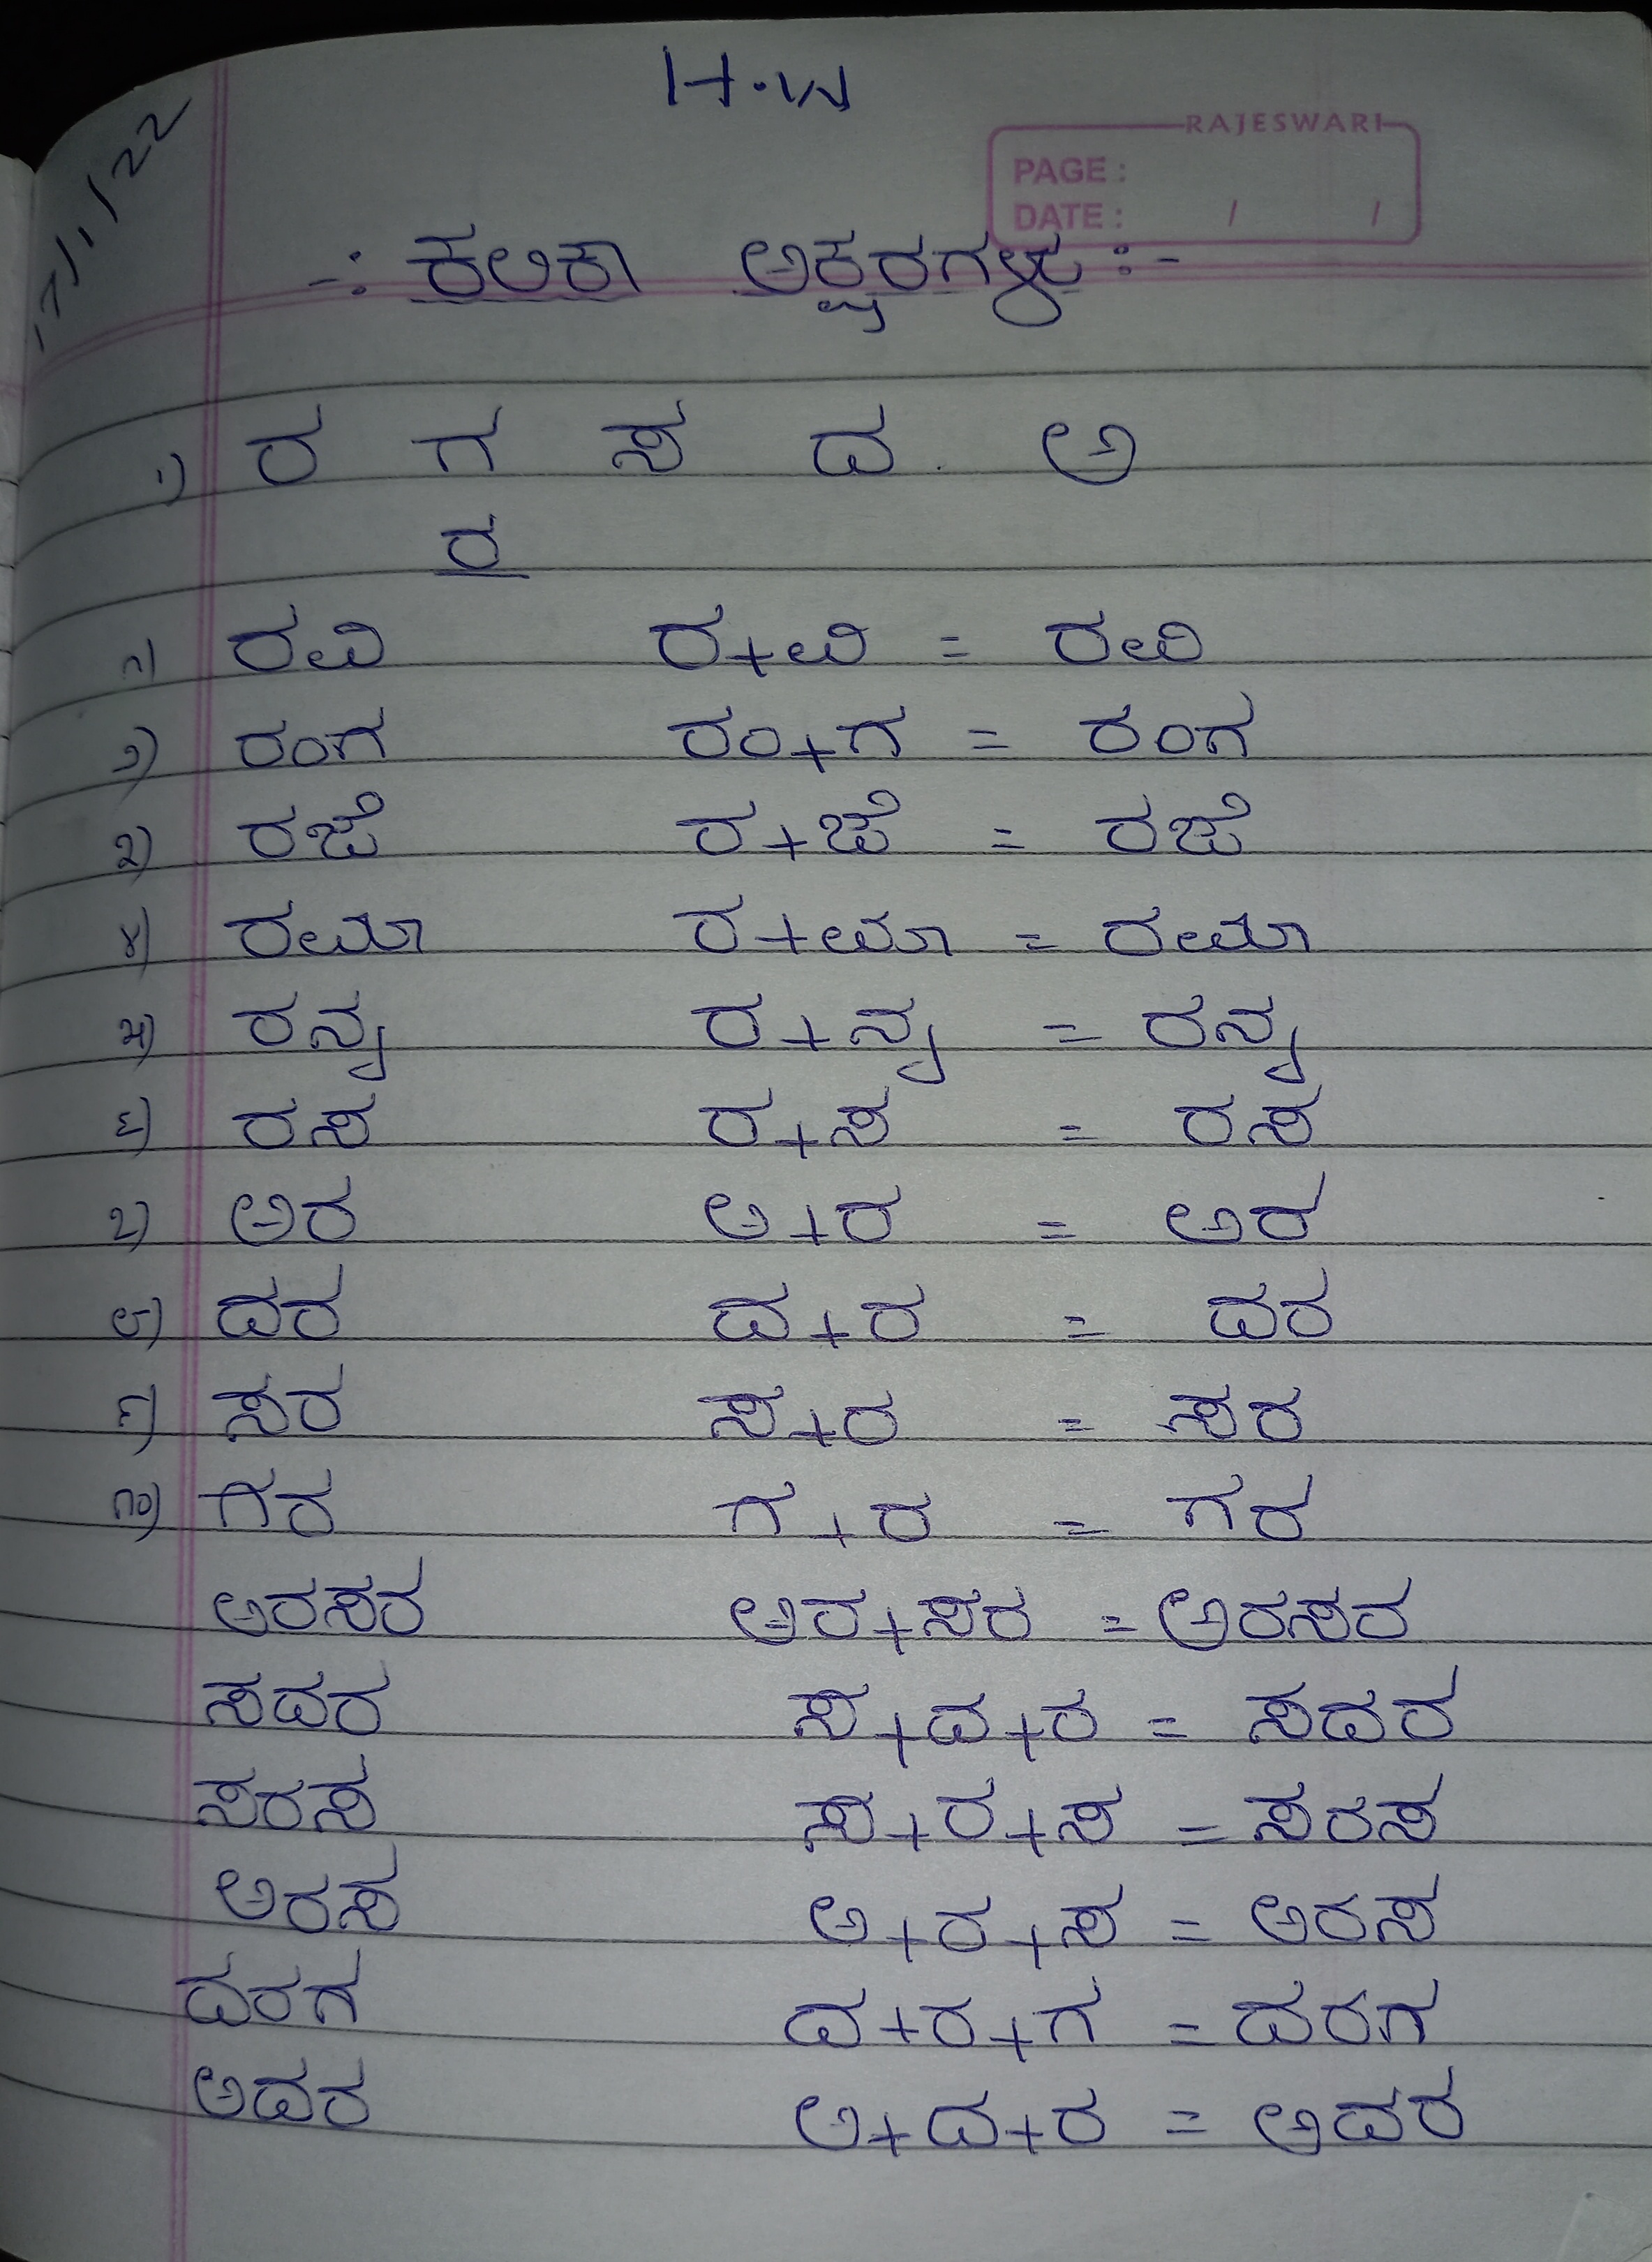 H.W
17/1/22
RAJESWARI
PAGE :
DATE : / /
-: ಕಲಿಕಾ ಅಕ್ಷರಗಳು :-
೧) ರ ಗ ಸ ದ . ಅ
ರ
೧) ರವಿ ರ+ವಿ = ರವಿ
೨) ರಂಗ ರಂ+ಗ = ರಂಗ
೩) ರಜೆ ರ+ಜೆ = ರಜೆ
೪) ರಮಾ ರ+ಮಾ = ರಮಾ
೫) ರನ್ನ ರ+ನ್ನ = ರನ್ನ
೬) ರಸ ರ+ಸ = ರಸ
೭) ಅರ ಅ+ರ = ಅರ
೮) ದರ ದ+ರ = ದರ
೯) ಸರ ಸ+ರ = ಸರ
೧೦) ಗರ ಗ+ರ = ಗರ
ಅರಸರ ಅರ+ಸರ = ಅರಸರ
ಸದರ ಸ+ದ+ರ = ಸದರ
ಸರಸ ಸ+ರ+ಸ = ಸರಸ
ಅರಸ ಅ+ರ+ಸ = ಅರಸ
ದರಗ ದ+ರ+ಗ = ದರಗ
ಅದರ ಅ+ದ+ರ = ಅದರ